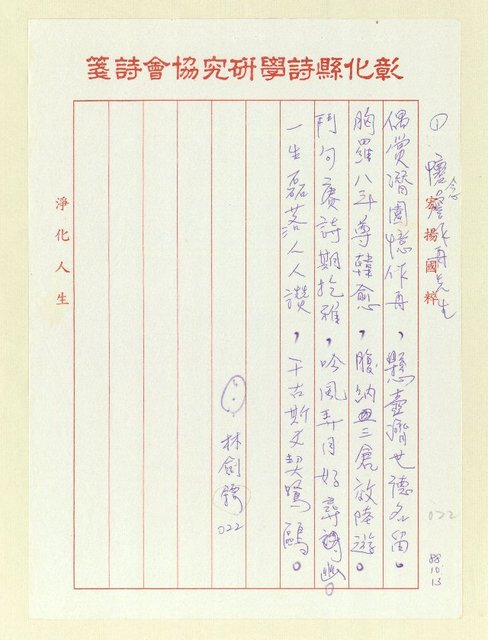 彰化縣詩學研究協會詩箋
宏揚國粹
022
88
10
13
① 懷念詹作舟先生
偶賞潛園憶作舟，懸壺濟世德名留。
胸羅八斗尊韓愈，腹納三倉效陸游。
鬥句賡詩期挖雅，吟風弄月好尋幽。
一生磊落人人讚，千古斯文契鷺鷗。
林劍鏢
022
淨化人生